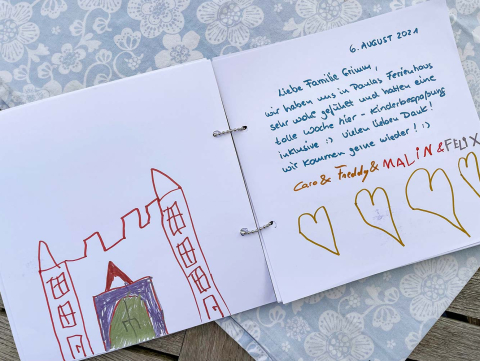 6. AUGUST 2021
Liebe Familie Grimm,
wir haben uns in Paulas Ferienhaus
sehr wohl gefühlt und hatten eine
tolle Woche hier - Kinderbespaßung
inklusive :) Vielen lieben Dank!
Wir kommen gerne wieder! :)
Caro & Freddy & MALIN & FELIX